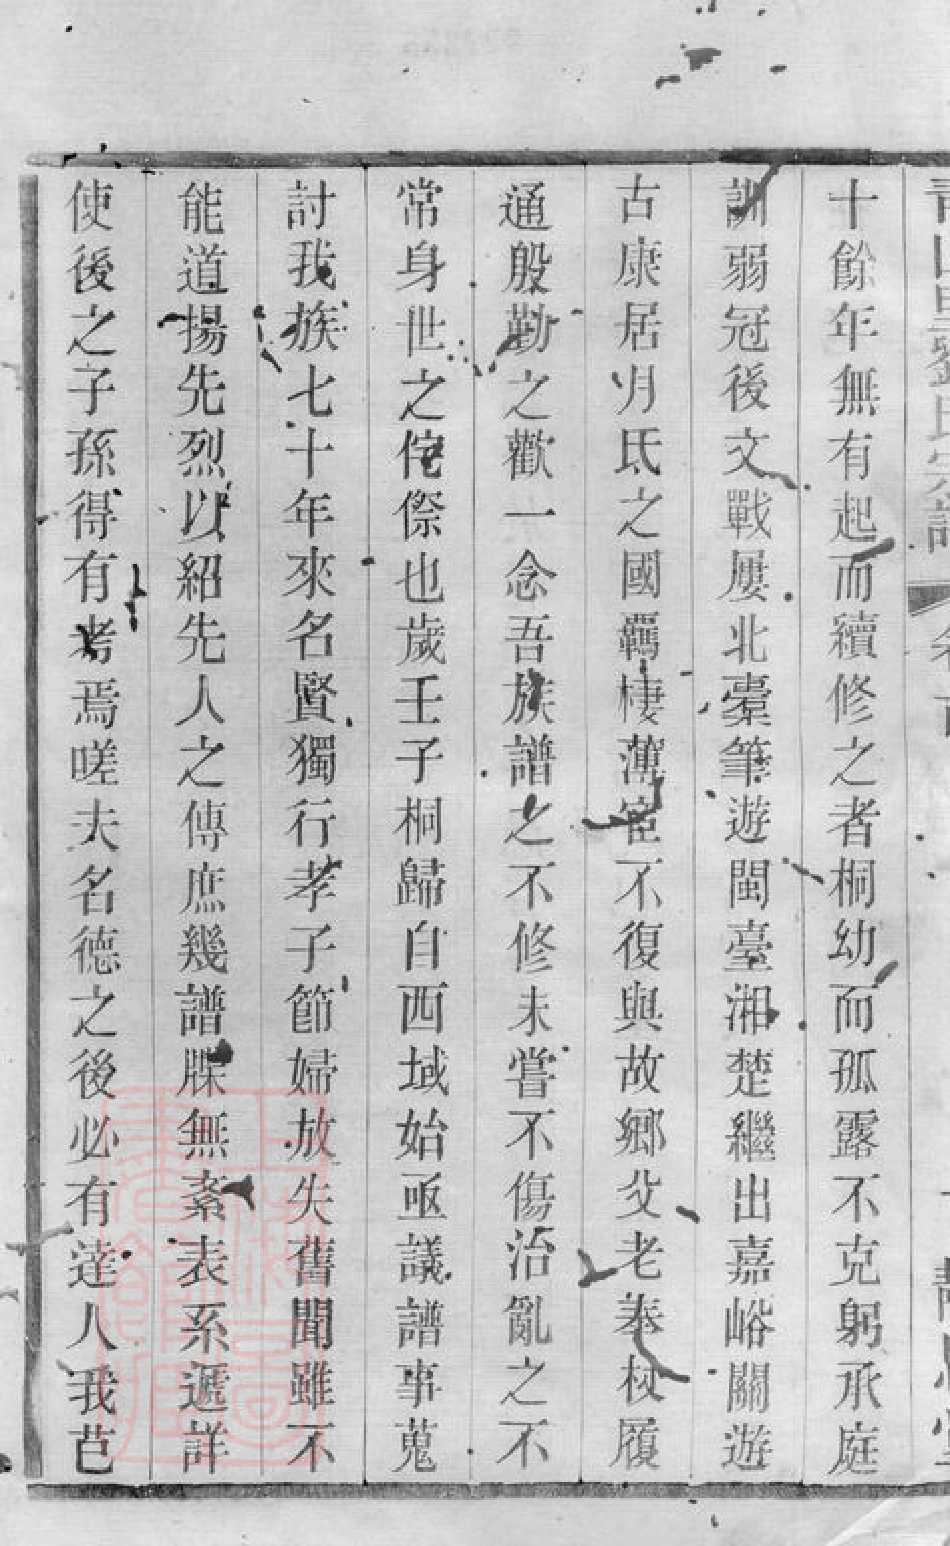 十餘年無有起而續修之者桐幼而孤露不克躬承庭
訓弱冠後文戰屢北橐筆遊閩臺湘楚繼出嘉峪關遊
古康居月氐之國羈棲薄宦不復與故鄉父老奉杖履
通殷勤之歡一念吾族譜之不修未嘗不傷治亂之不
常身世之侘傺也歲壬子桐歸自西域始亟議譜事蒐
討我族七十年來名賢獨行孝子節婦放失舊聞雖不
能道揚先烈以紹先人之傳庶幾譜牒無紊表系遞詳
使後之子孫得有考焉嗟夫名德之後必有達人我芭